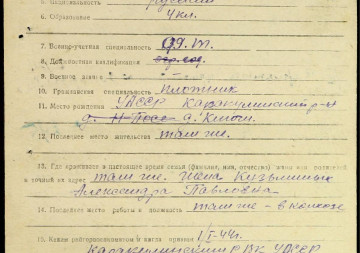 5. Национальность русский
6. Образование 4 кл.
7. Военноучетная специальность
8. Должностная квалификация
9. Военное звание
10. Гражданская специальность Плотник
11. Место рождения УАССР Каракулинский р-н
д. Ключи.
12. Последнее место жительства там же.
13. Где проживает в настоящее время семья (фамилия, имя, отчество) жены или родителей
и точный ее адрес там же. Жена Кузьминых
Александра Павловна
14. Последнее место работы и должность там же – в колхозе
15. Каким райгорвоенкоматом и когда призван 1944г.
Каракулинским РВК УАССР